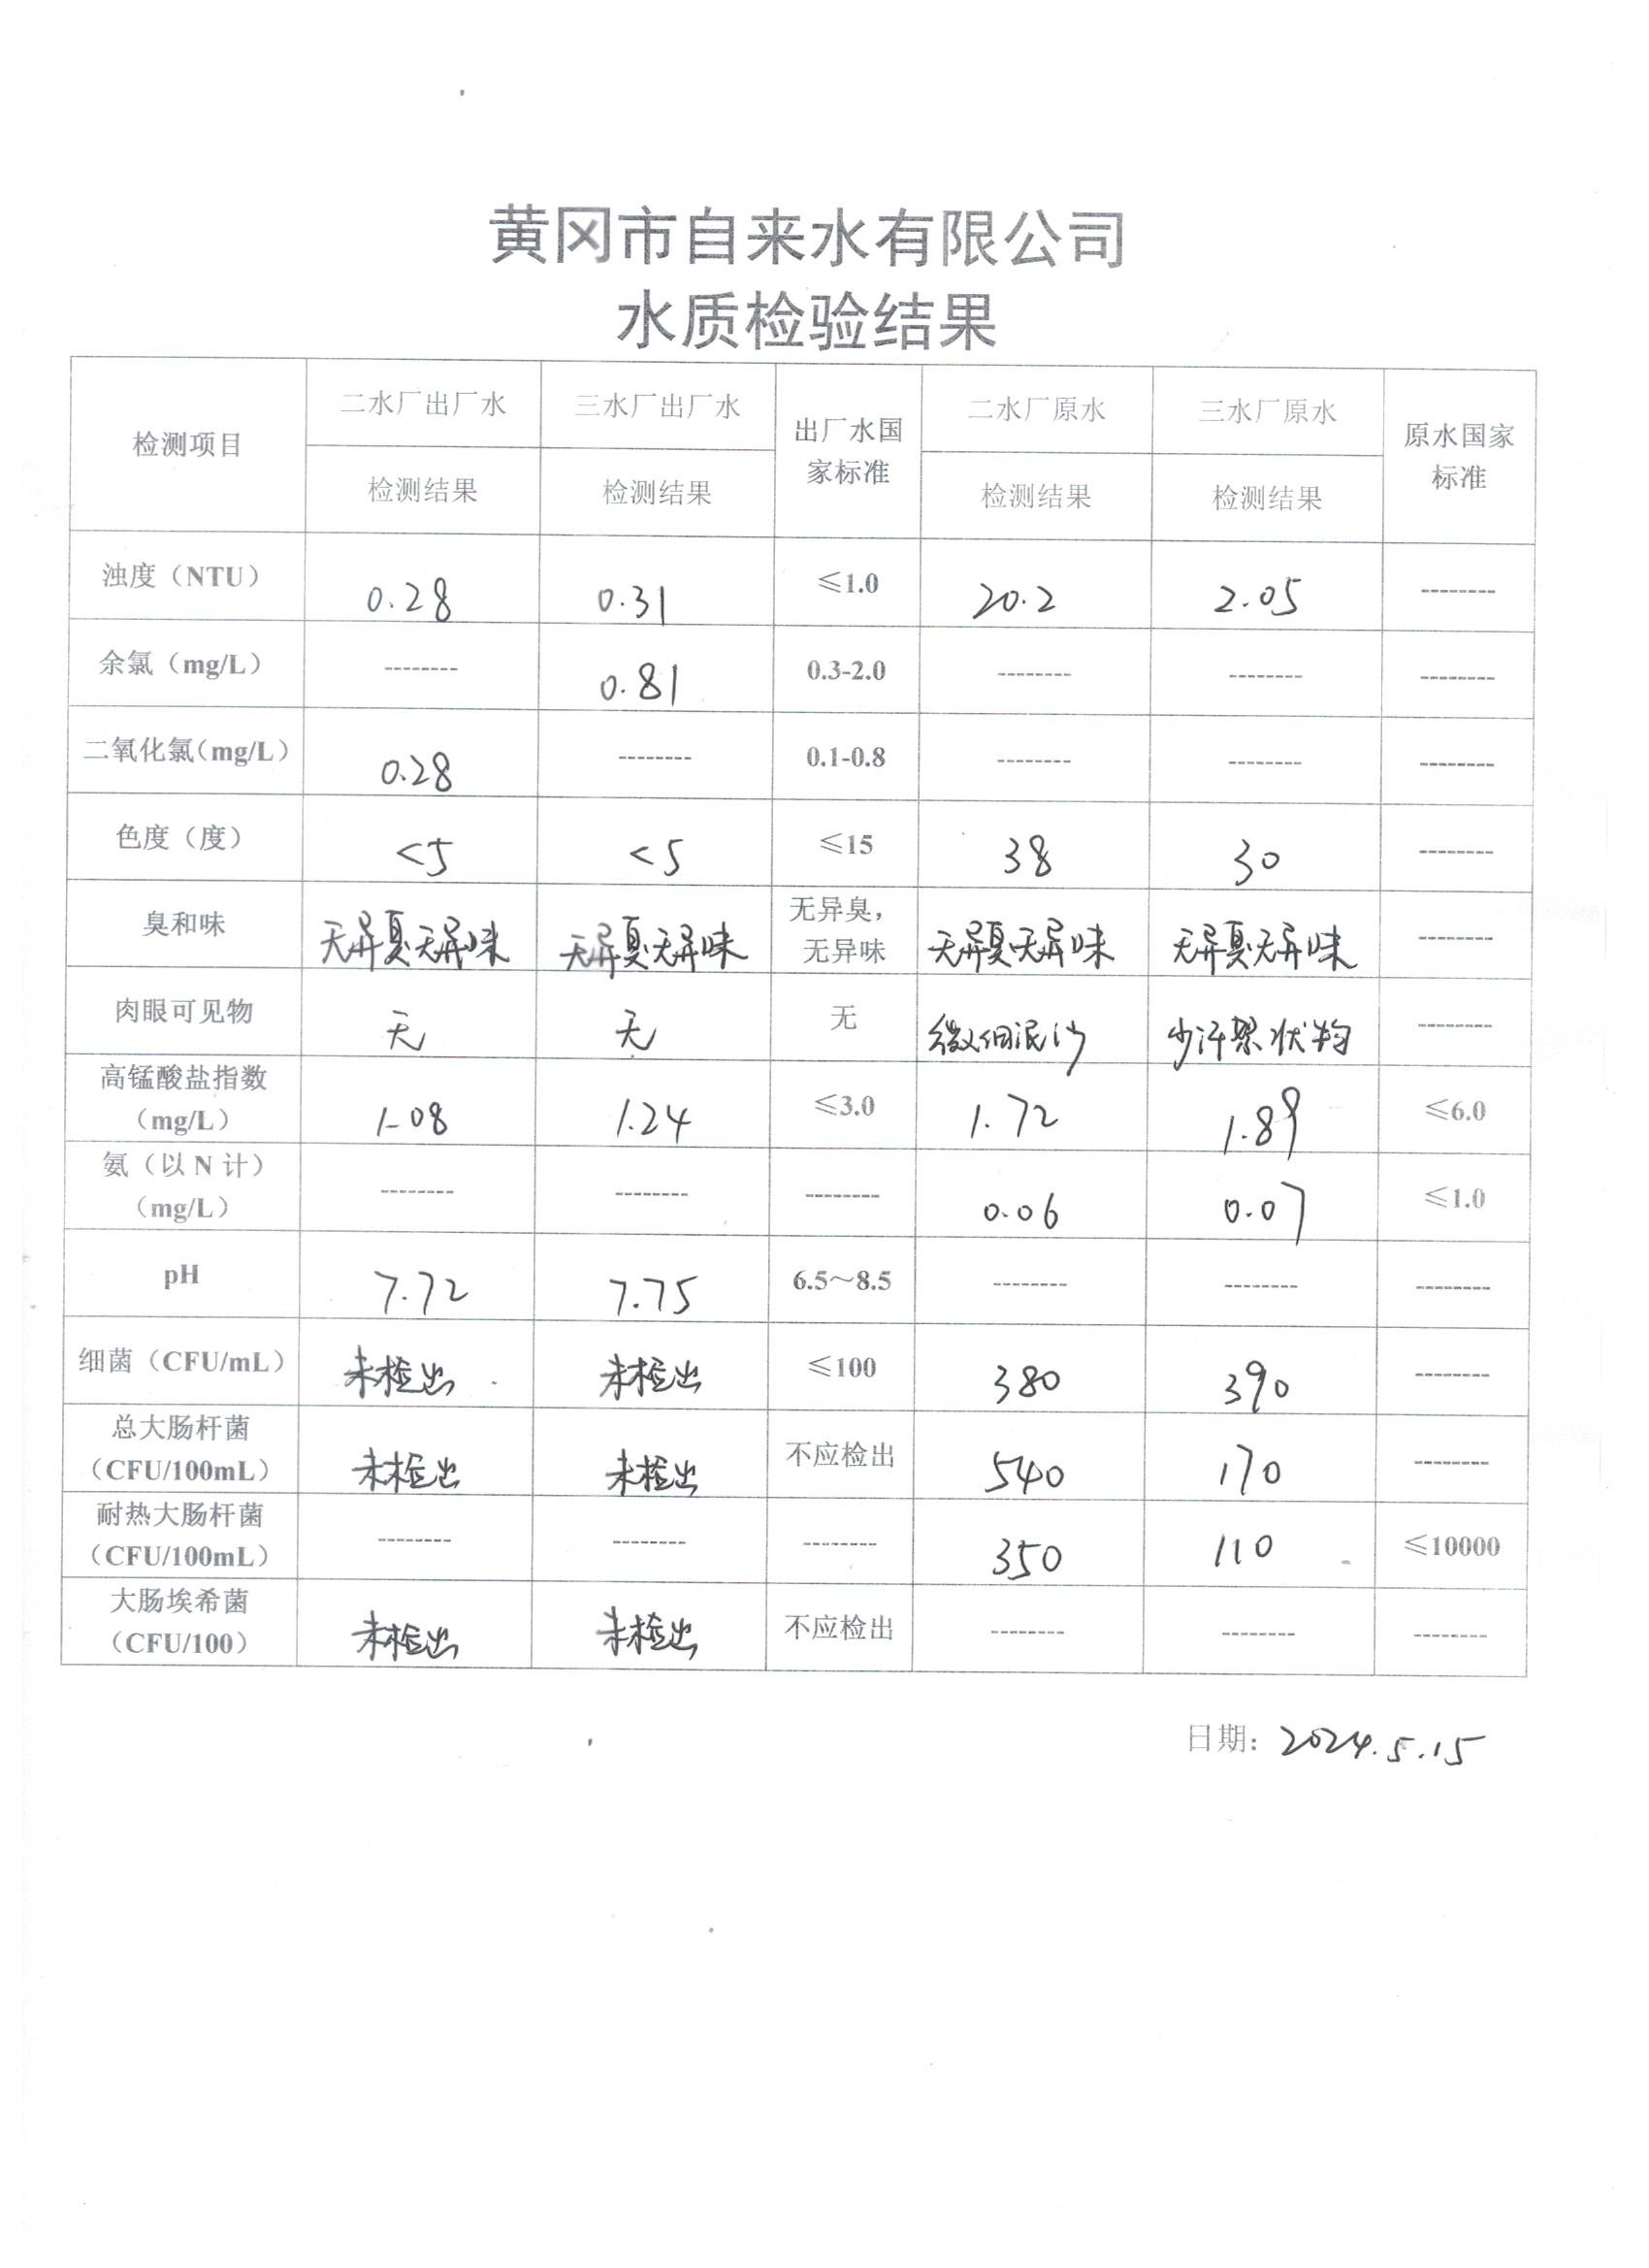 黄冈市自来水有限公司
水质检验结果
检测项目 二水厂出厂水 三水厂出厂水 出厂水国家标准 二水厂原水 三水厂原水 原水国家标准
检测结果 检测结果 检测结果 检测结果
浊度（NTU） 0.28 0.31 ≤1.0 20.2 2.05 --------
余氯（mg/L） -------- 0.81 0.3-2.0 -------- -------- --------
二氧化氯（mg/L） 0.28 -------- 0.1-0.8 -------- -------- --------
色度（度） <5 <5 ≤15 38 30 --------
臭和味 无异臭无异味 无异臭无异味 无异臭，无异味 无异臭无异味 无异臭无异味 --------
肉眼可见物 无 无 无 微细泥沙 少许絮状物 --------
高锰酸盐指数（mg/L） 1.08 1.24 ≤3.0 1.72 1.89 ≤6.0
氨（以 N 计）（mg/L） -------- -------- -------- 0.06 0.07 ≤1.0
pH 7.72 7.75 6.5～8.5 -------- -------- --------
细菌（CFU/mL） 未检出 未检出 ≤100 380 390 --------
总大肠杆菌（CFU/100mL） 未检出 未检出 不应检出 540 170 --------
耐热大肠杆菌（CFU/100mL） -------- -------- -------- 350 110 ≤10000
大肠埃希菌（CFU/100） 未检出 未检出 不应检出 -------- -------- --------
日期：2024.5.15